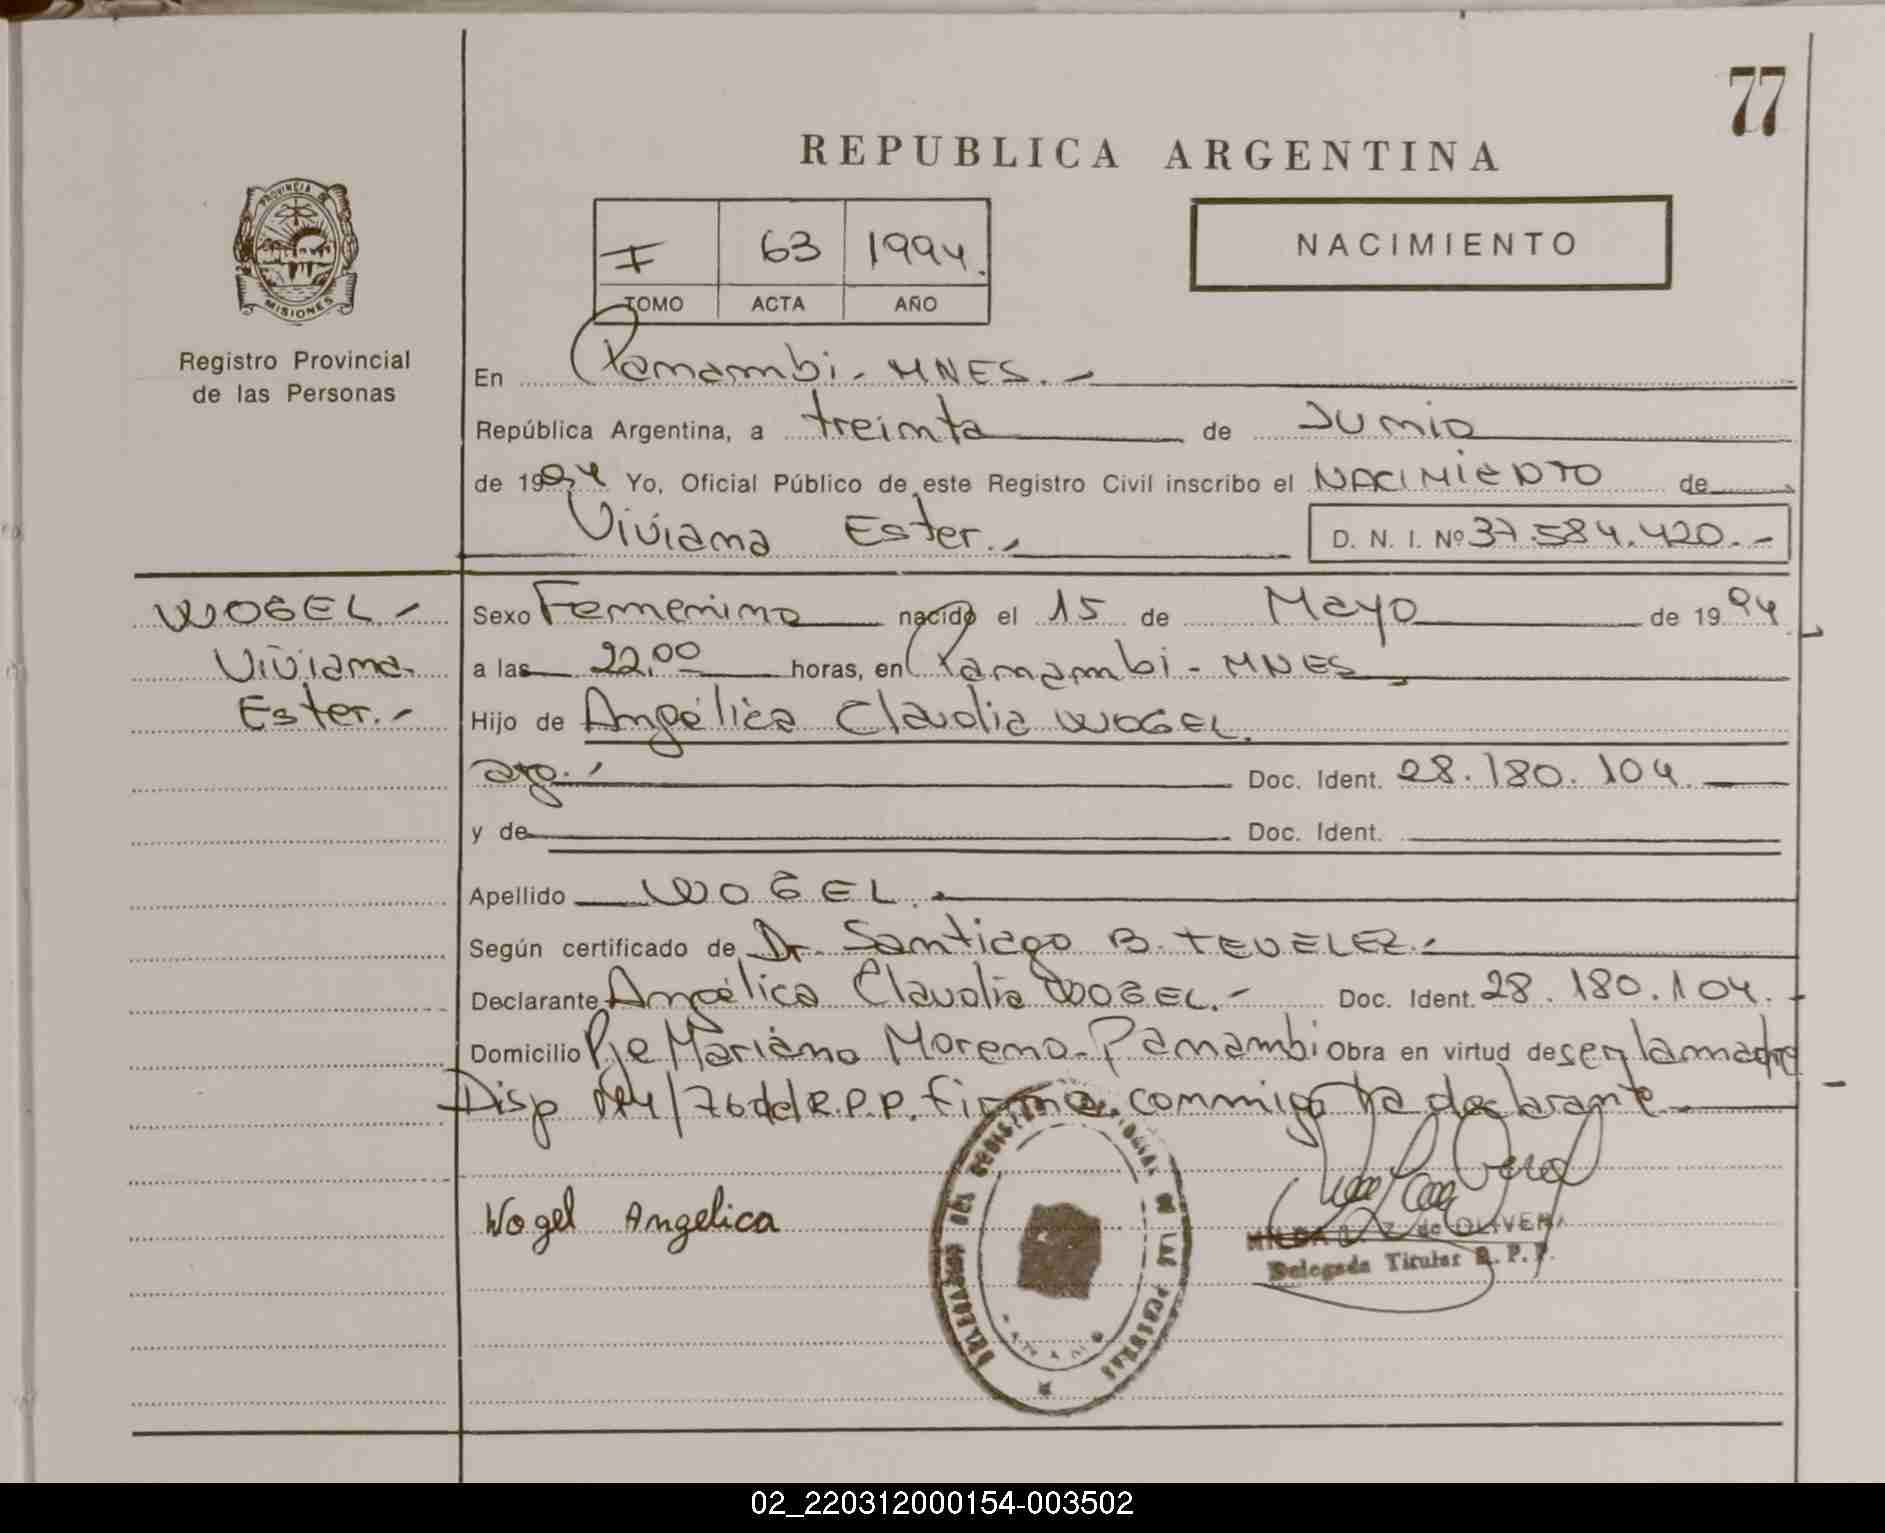 77
REPUBLICA ARGENTINA
PROVINCIA DE
MISIONES
Registro Provincial
de las Personas
I 63 1994.
TOMO ACTA AÑO
NACIMIENTO
En Panambi - MNES. -
República Argentina, a treinta de Junio
de 1994 Yo, Oficial Público de este Registro Civil inscribo el NACIMIENTO de
Viviana Ester.-
D. N. I. Nº 37.584.420.-
WOGEL -
Viviana
Ester.-
Sexo Femenino nacido el 15 de Mayo de 1994
a las 22,00 horas, en Panambi - MNES
Hijo de Angélica Claudia WOGEL.
arg.- Doc. Ident. 28.180.104.
y de Doc. Ident.
Apellido WOGEL.
Según certificado de Dr. Santiago B. TEVELEZ.-
Declarante Angélica Claudia WOGEL.- Doc. Ident. 28.180.104.
Domicilio Pje Mariano Moreno - Panambi Obra en virtud de ser la madre
Disp Nº4/76 del R.P.P. Firma conmigo la declarante
Wogel Angelica
DELEGACION DEL REGISTRO PROVINCIAL DE LAS PERSONAS
de OLIVERA
Delegada Titular R. P. P.
02_220312000154-003502